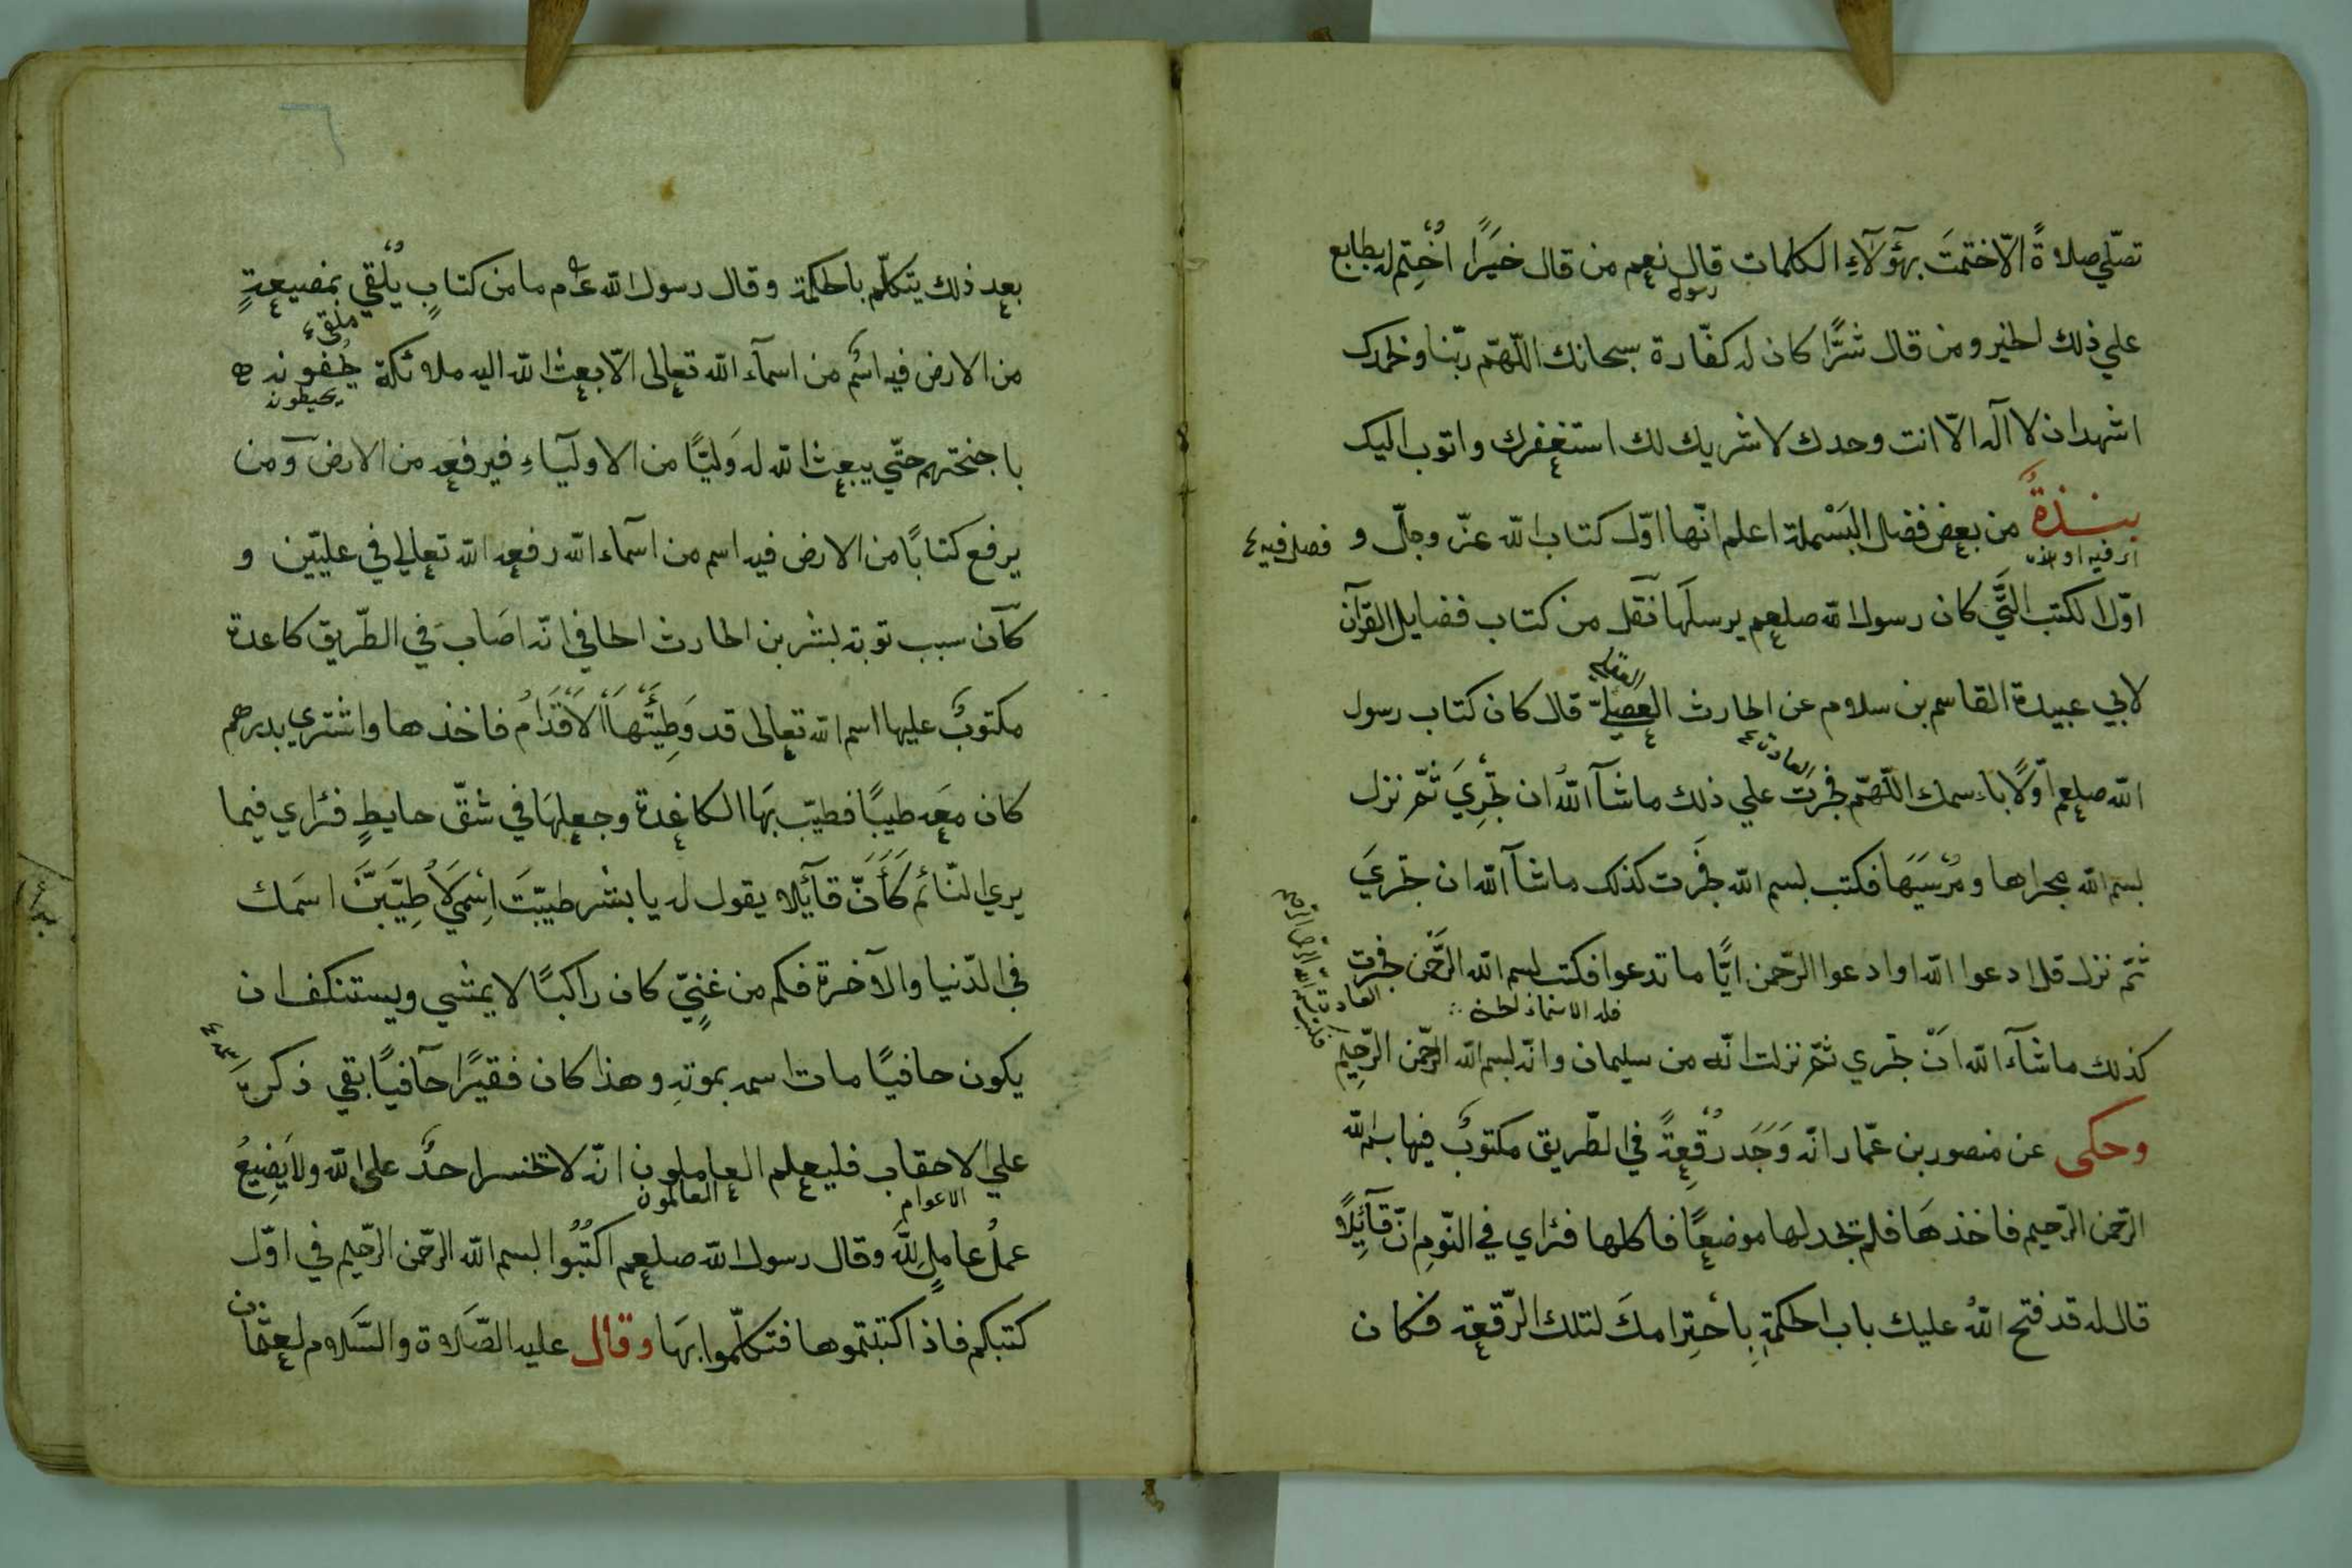 تصلّي صلاةً الّا ختمتَ بهٓؤلآءِ الكلمات قال نعم من قال خيرًا اُخْتِم له بطابع
رسول
علي ذلك الخير ومن قال شرًّا كان له كفّارة سبحانك اللّهمّ ربّنا وبحمدك
اشهد ان لا اله الّا انت وحدك لا شريك لك استغفرك واتوب اليك
نبذةٌ من بعض فضل البَسْملة اعلم انّها اوّل كتاب الله عزّ وجلّ و فصل فيه
اوّل الكتب الّتي كان رسول الله صلعم يرسلها نقل من كتاب فضايل القرآن
لابي عبيدة القاسم بن سلام عن الحارث العصليّ قال كان كتاب رسول
العادة
الله صلعم اوّلًا باسمك اللّهمّ فجرت علي ذلك ماشآ اللهُ ان تجْرِيَ ثمّ نزل
بسم الله مجراها ومُرْسَيَها فكتب بسم الله فجَرت كذلك ماشآ الله ان تجريَ
ثمّ نزل قل ادعوا الله او ادعوا الرّحمن ايًّا ما تدعوا فكتب بسم الله الرَّحمن فجرت
العادة
كذلك ماشآء الله انْ تجري ثمّ نزلت انّه من سليمان وانّه بسم الله الرّحمن الرّحيمِ
وحكى عن منصور بن عمّار انّه وَجَد رُقعةً في الطّريق مكتوبٌ فيها بسم الله
الرّحمن الرّحيم فاخذها فلم تجد لها موضعًا فاكلها فرٔاي في النّومِ انّ قآئِلًا
قال له قد فتح اللهُ عليك باب الحكمةِ بِاحْتِرامكَ لتلك الرّقعة فكان
بعد ذلك يتكلّم بالحكمة وقال رسول الله عم ما من كتابٍ يُلْقي بمضيعةٍ
ملقى
من الارض فيه اسْمٌ من اسمآء الله تعالى الّا بعث الله اليه ملائكة يحُفّونه
يحيطونه
باجنحتهم حتّي يبعث الله له وَليًّا من الاوليآءِ فيرفعه من الارض ومن
يرفع كتابًا من الارض فيه اسم من اسمآء الله رفعه الله تعالي في عليّين و
كان سبب توبة لبشر بن الحارث الحافي انّه اصَابَ في الطّريق كاغدة
مكتوبٌ عليها اسم الله تعالى قد وَطِئَتْها الاَقْدَامُ فاخذها واشتري بدرهم
كان معَه طيبًا فطيّب بهَا الكاغدة وجعلهَا في شقّ حايطٍ فرٔاي فيما
يري النّائم كَأَنّ قآئلا يقول له يا بشر طيّبْتَ اِسْمي لاُطيّبَنَّ اسمَك
في الدّنيا والآخرة فكم من غنيٍّ كان راكبًا لا يمشي ويستنكف ان
يكون حافيًا مات اسمه بموتهِ وهذا كان فقيرًا حافيًا بقي ذكره
علي الاحقاب فليعلم العاملون انّه لا تخسر احدٌ على الله ولا يَضِيعُ
الاعوام العالمون
عملُ عاملٍ للهِ وقال رسول الله صلعم اكْتُبُوا بسم الله الرّحمن الرّحيم في اوّل
كتبكم فاذا كتبتموها فتكلّموا بهَا وقال عليه الصّلاة والسّلام لعثمان